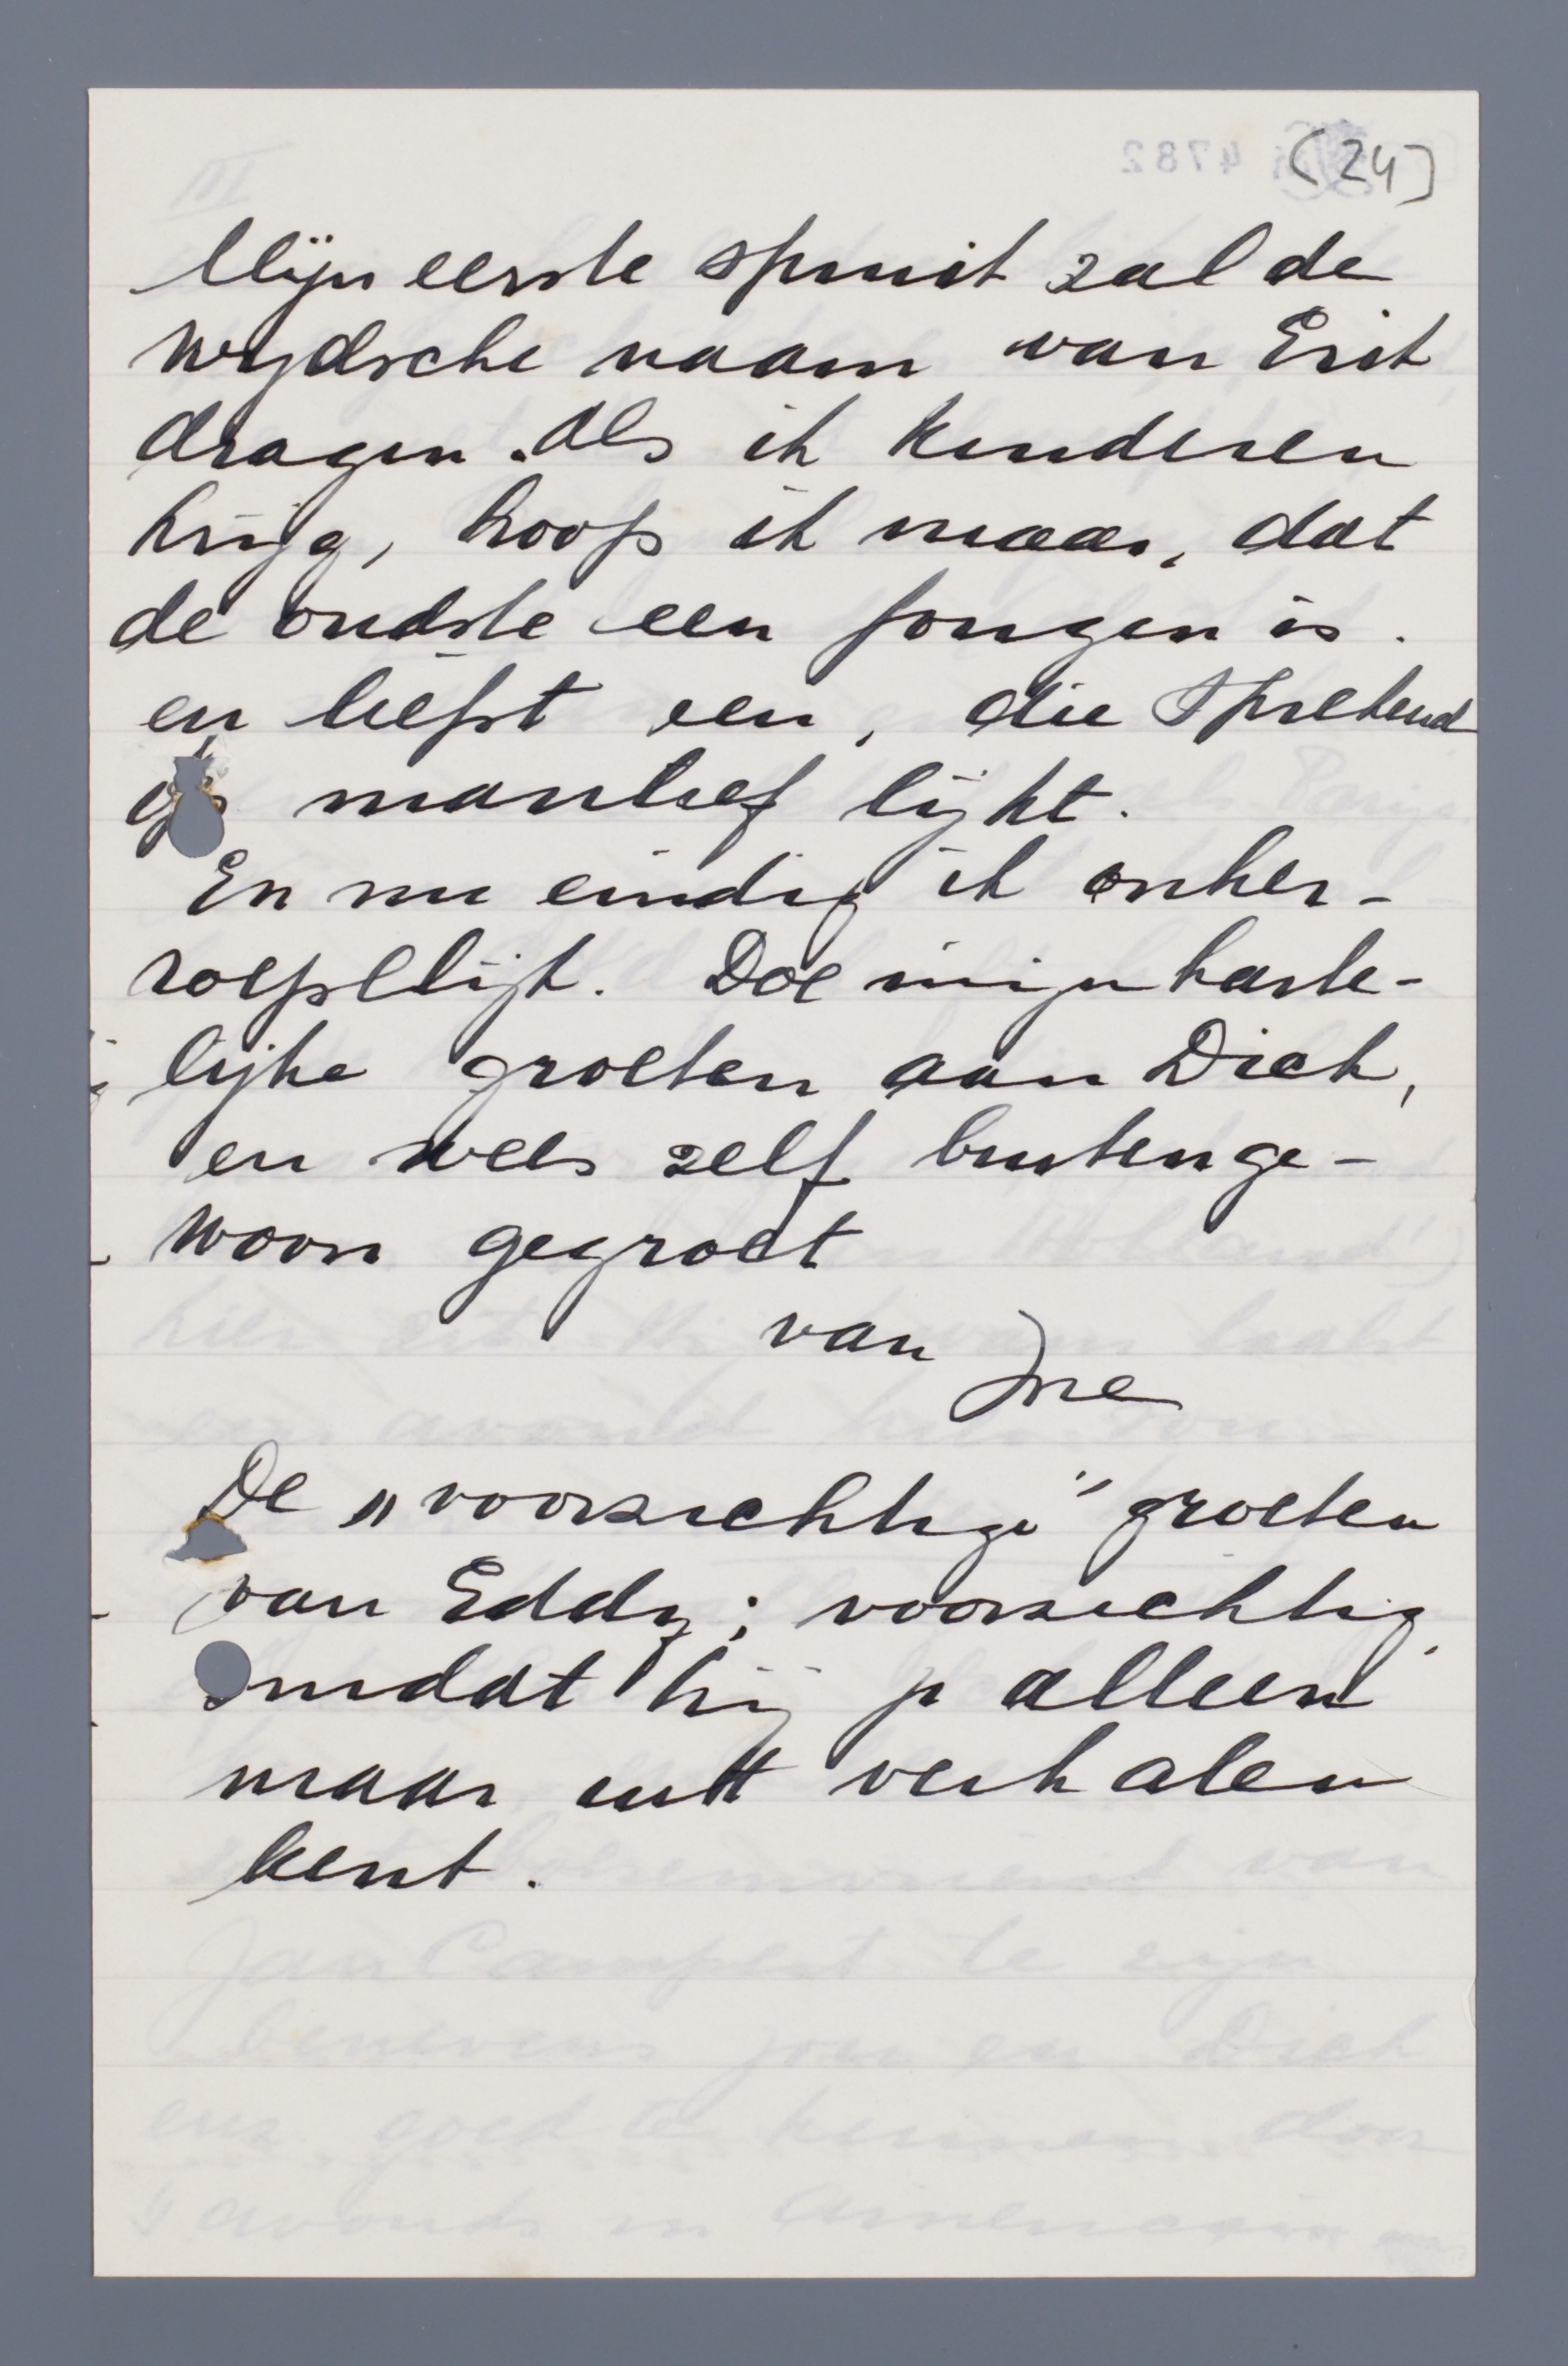 (24)
Mijn eerste spruit zal de
wijdsche naam van Erik
dragen. Als ik kinderen
krijg, hoop ik maar, dat
de oudste een jongen is.
en liefst een, die sprekend
op manlief lijkt.
En nu eindig ik onher-
roepelijk. Doe mijn harte-
lijke groeten aan Dick,
en wees zelf buitenge-
woon gegroet
van Ine
De „voorzichtige" groeten
van Eddy; voorzichtig,
omdat hij je alleen
maar uit verhalen
kent.